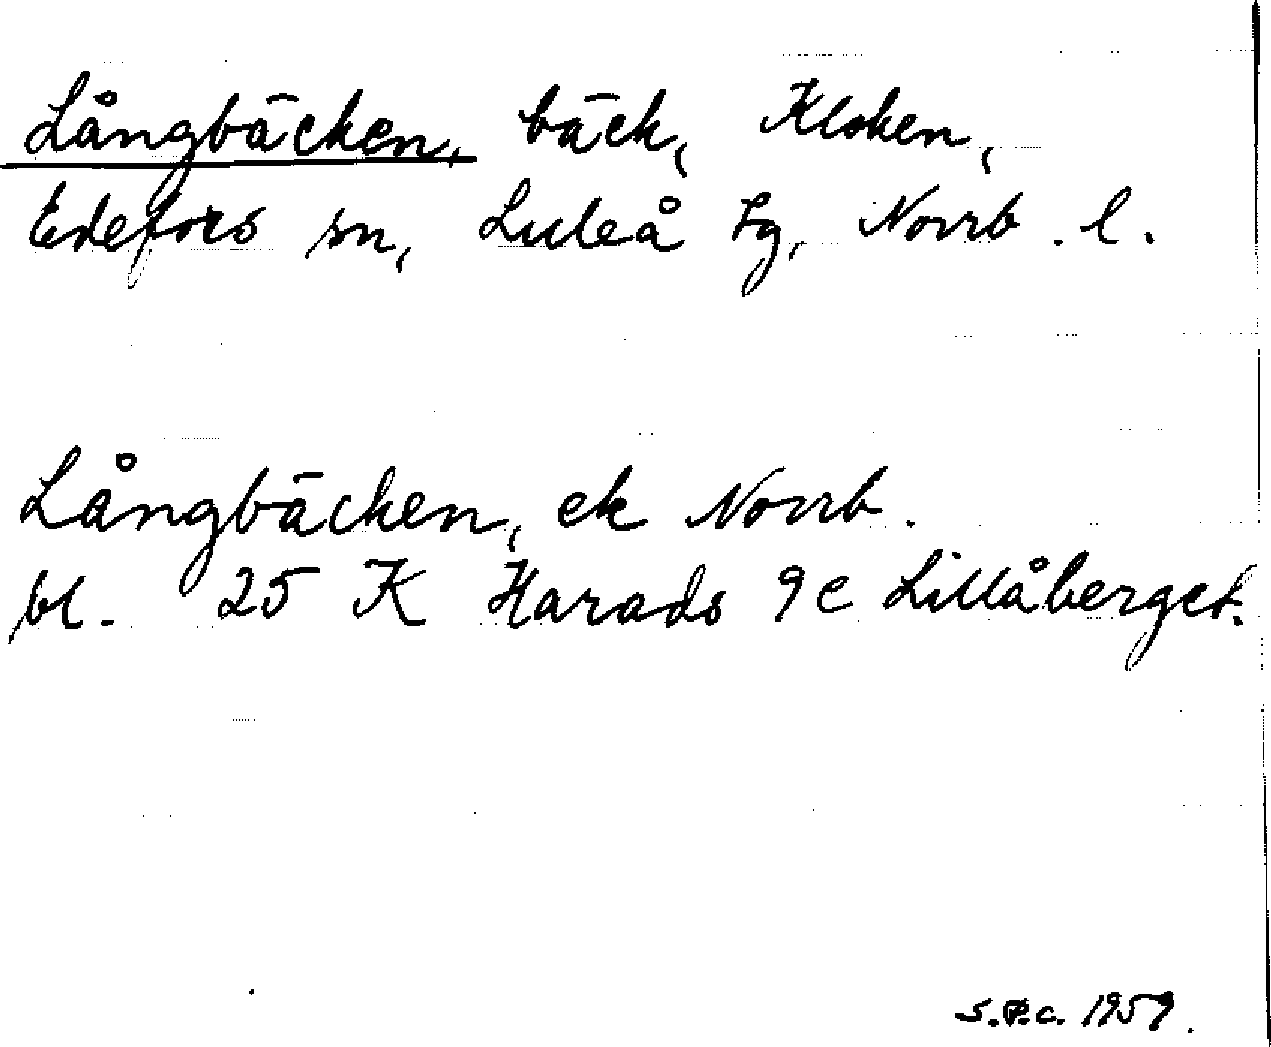 Långbäcken, bäck, Klöken,
Edefors sn, Luleå tg, Norrb. l.
Långbäcken, ek Norrb.
bl. 25 K Harads 9 c Lillåberget.
S.P.C. 1959.